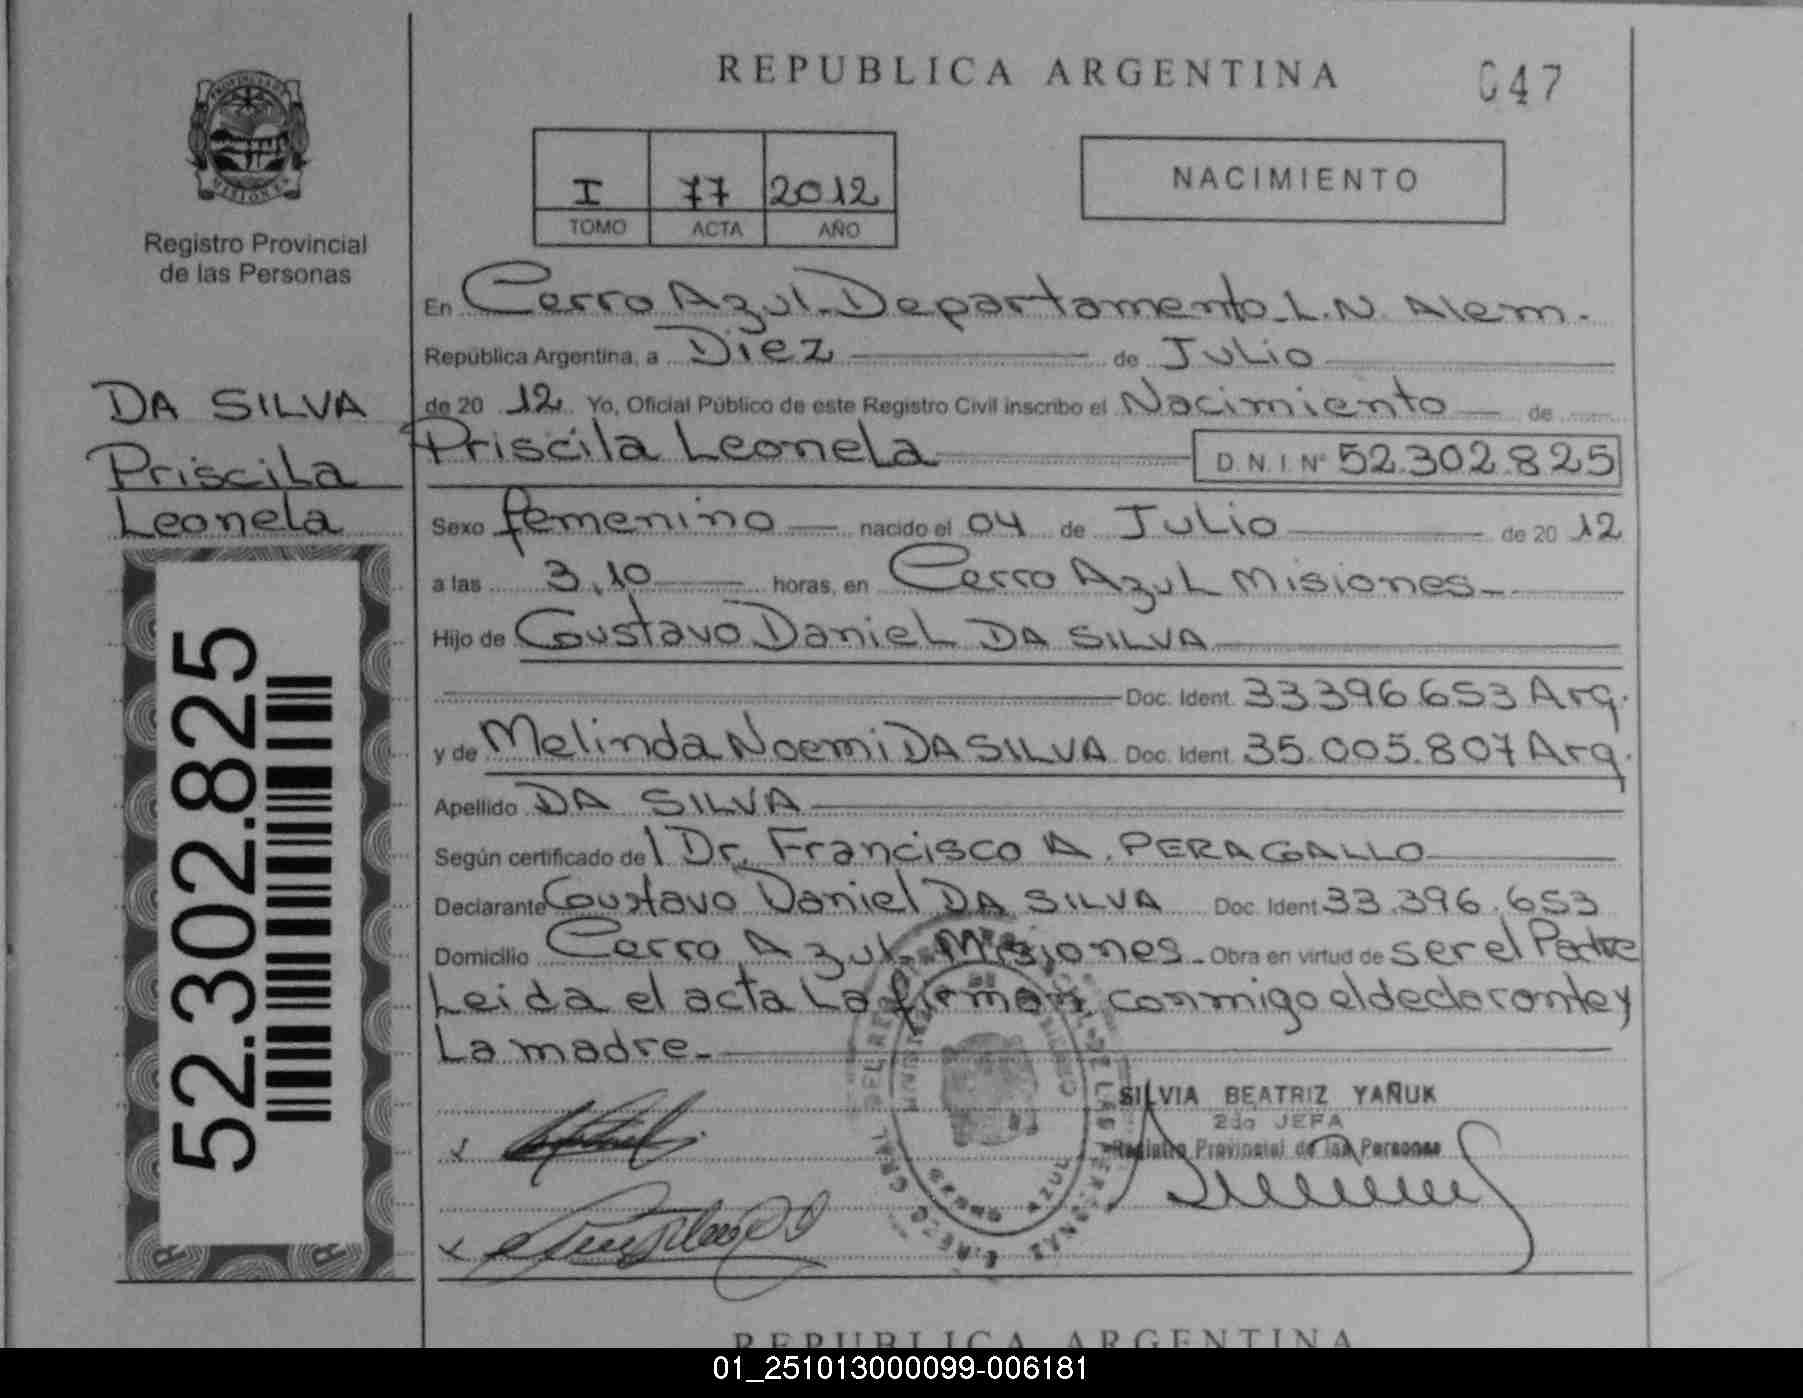 REPUBLICA ARGENTINA
047
PROVINCIA DE
MISIONES
Registro Provincial
de las Personas
I 77 2012
TOMO ACTA AÑO
NACIMIENTO
DA SILVA
Priscila
Leonela
52.302.825
En Cerro Azul - Departamento L.N. Alem.
República Argentina, a Diez de Julio
de 20 12 Yo, Oficial Público de este Registro Civil inscribo el Nacimiento de
Priscila Leonela D.N.I. N° 52.302.825
Sexo femenino nacido el 04 de Julio de 20 12
a las 3,10 horas, en Cerro Azul Misiones
Hijo de Gustavo Daniel DA SILVA
Doc. Ident. 33396653 Arg.
y de Melinda Noemi DA SILVA Doc. Ident. 35.005.807 Arg.
Apellido DA SILVA
Según certificado del Dr. Francisco A. PERAGALLO
Declarante Gustavo Daniel DA SILVA Doc. Ident. 33.396.653
Domicilio Cerro Azul - Misiones - Obra en virtud de ser el Padre
Leida el acta La firman conmigo el declarante y
La madre.-
SILVIA BEATRIZ YAÑUK
2da JEFA
Registro Provincial de las Personas
CERRO AZUL
REPUBLICA ARGENTINA
01_251013000099-006181